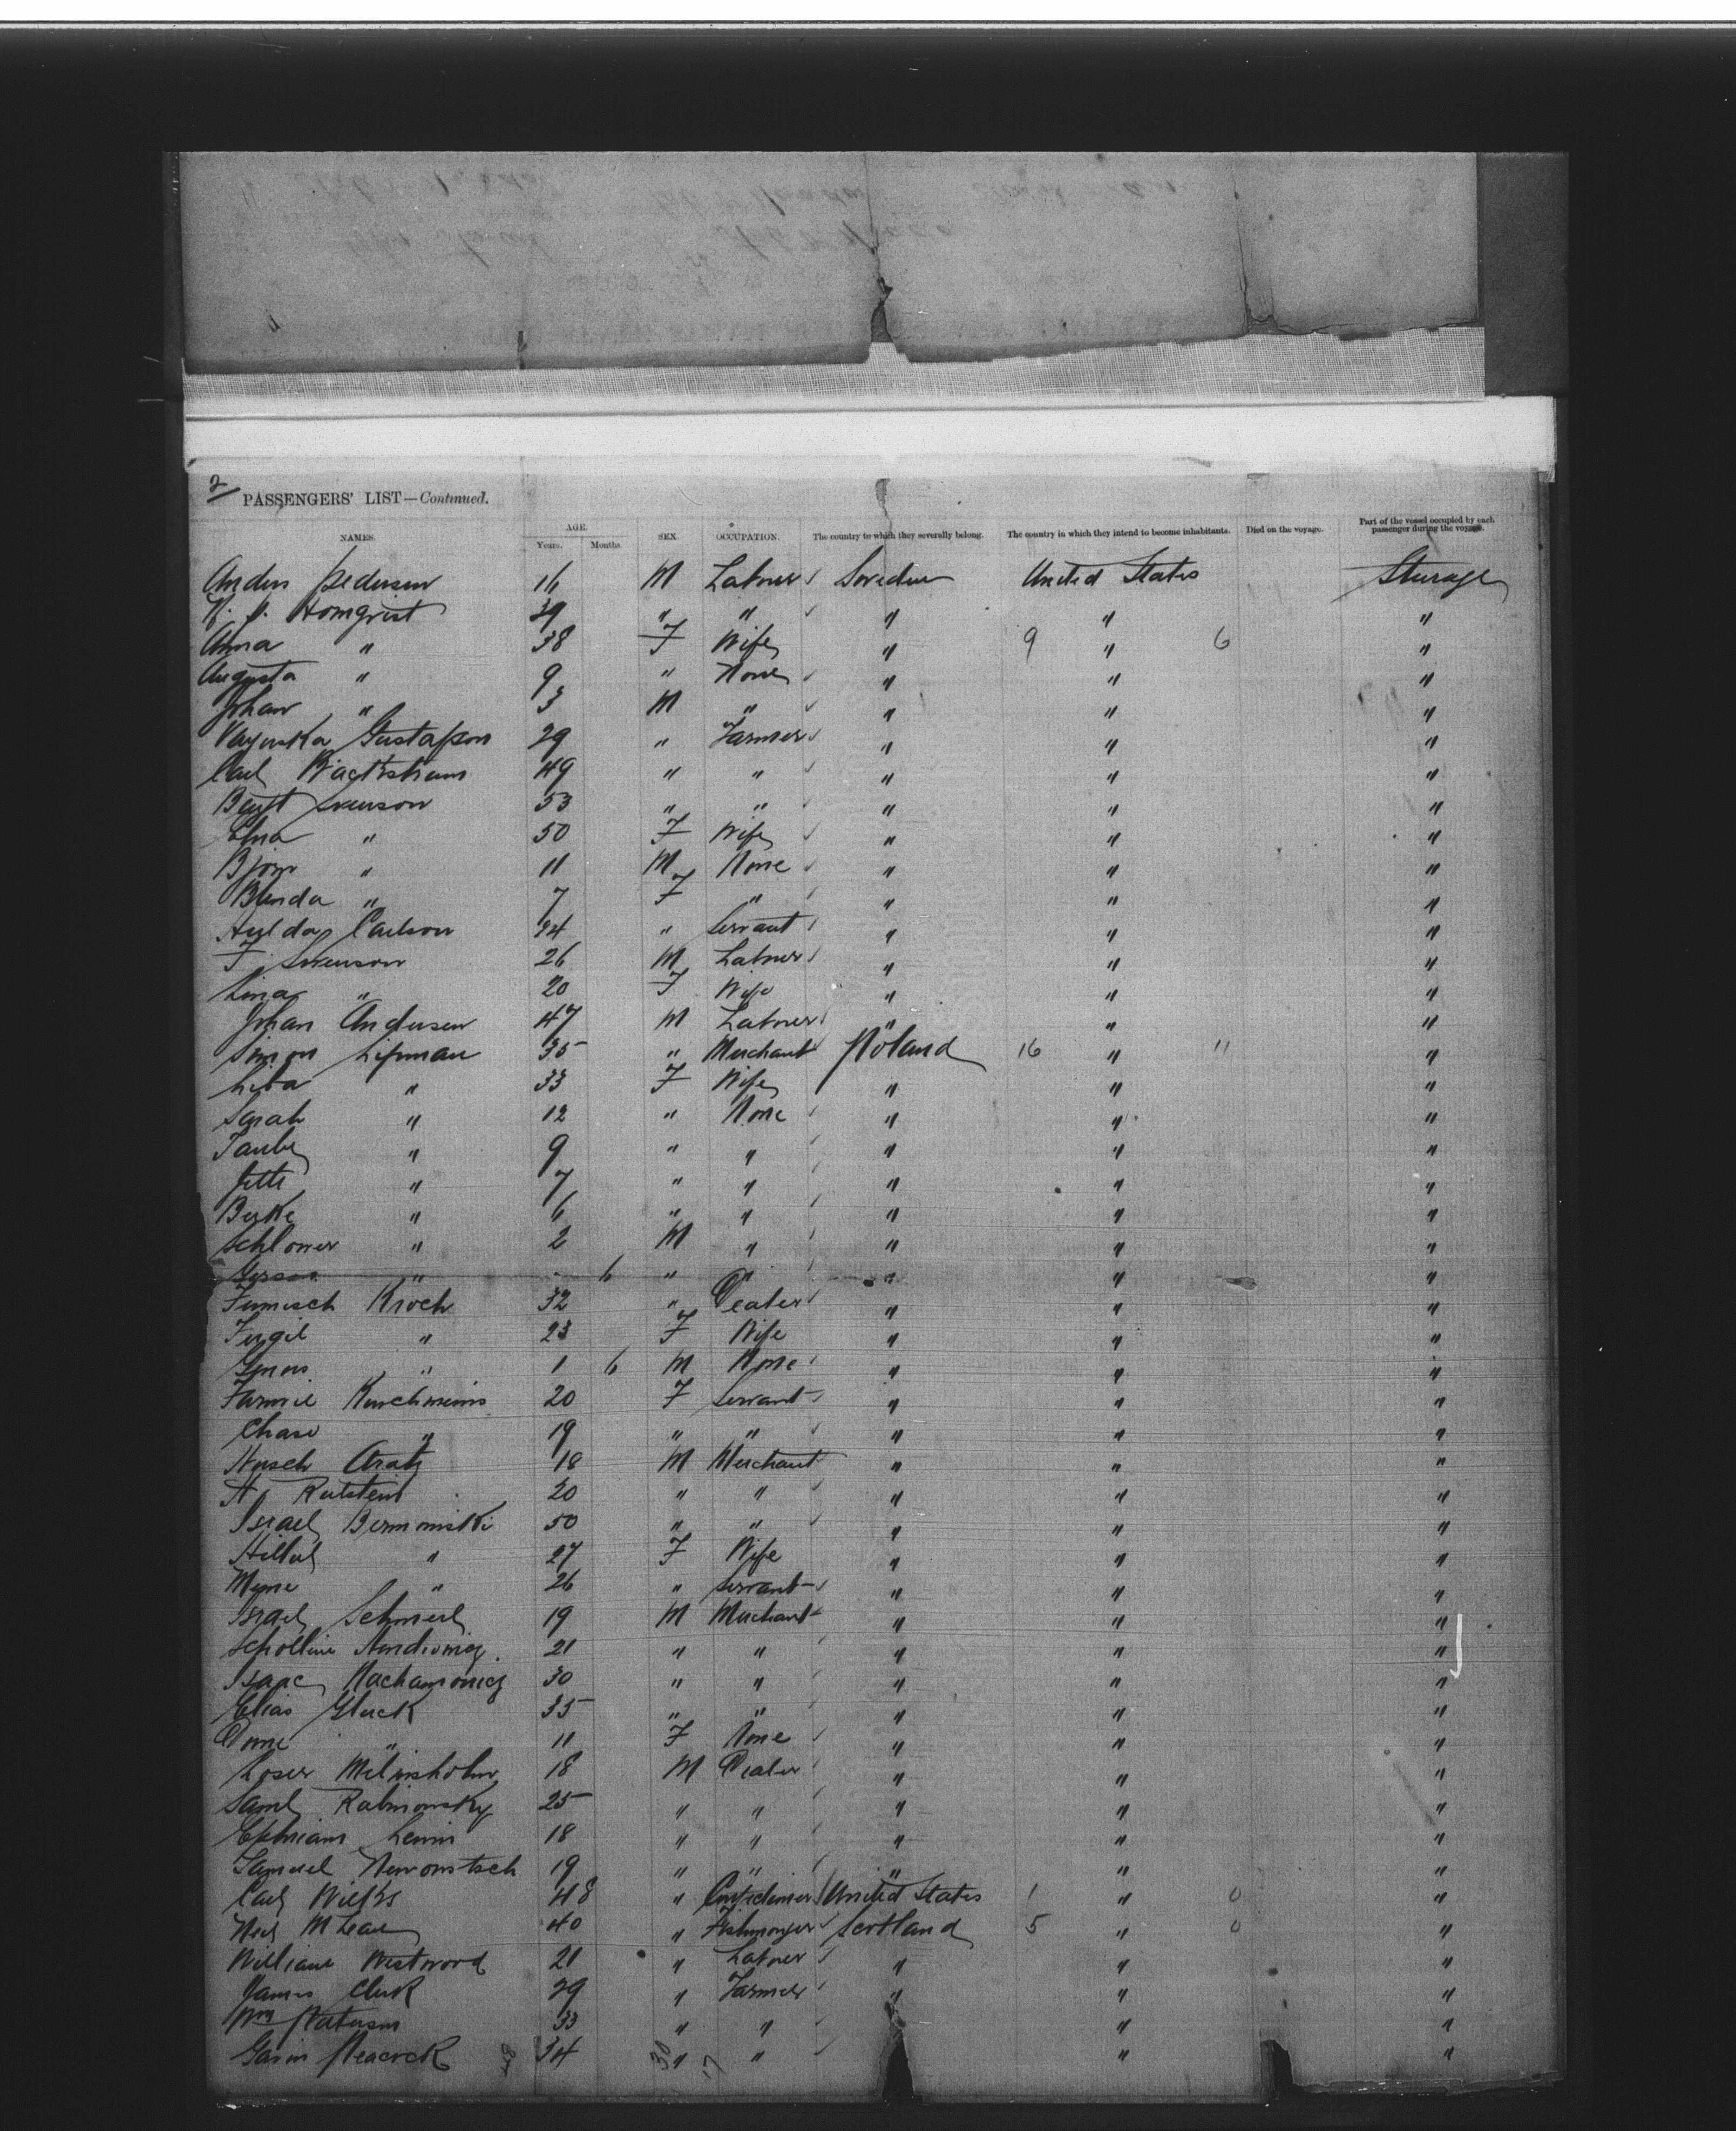 2
PASSENGERS' LIST—Continued.
NAMES. AGE. Years. Months SEX. OCCUPATION. The country to which they severally belong. The country in which they intend to become inhabitants. Died on the voyage. Part of the vessel occupied by each passenger during the voyage.
Anders Pedersen 16 M Laborer Sweden United States Steerage
Homqvist 39 " " " " "
Anna " 38 F Wife " 9 " 6 "
Augusta " 9 " None " " "
Johan " 3 M " " " "
Gustafson 29 " Farmer " " "
Carl 49 " " " " "
Bengt Svenson 53 " " " " "
Elna " 50 F Wife " " "
Bjorn " 11 M None " " "
Blenda " 7 F " " " "
Hulda Carlson 24 " Servant " " "
F. Svenson 26 M Laborer " " "
Lina " 20 F Wife " " "
Johan Andersen 47 M Laborer " " "
Simon Lipman 35 " Merchant Poland 16 " 11 "
Leba " 33 F Wife " " "
Sarah " 12 " None " " "
Taube " 9 " " " " "
Jette " 7 " " " " "
Berke " 6 " " " " "
Schlomer " 2 M " " " "
" 6 " " " " "
Kroch 32 " Dealer " " "
Feigel " 23 F Wife " " "
" 1 6 M None " " "
Fannie 20 F Servant " " "
Chase " 19 " " " " "
Hirsch Aratz 18 M Merchant " " "
H Rutstein 20 " " " " "
Israel 50 " " " " "
" 27 F Wife " " "
" 26 " Servant " " "
Israel Schmerl 19 M Merchant " " "
21 " " " " "
Isaac Nachamowicz 30 " " " " "
Elias Gluck 35 " " " " "
" 11 F None " " "
Loser 18 M Dealer " " "
Saml Rabinowsky 25 " " " " "
Ephriam Lewin 18 " " " " "
Samuel 19 " " " " "
Carl Wilks 48 " United States 1 " 0 "
Neil McLean 40 " Fishmonger Scotland 5 " 0 "
William Westwood 21 " Laborer " " "
James Clerk 29 " Farmer " " "
Wm Paterson 33 " " " " "
Gavin Peacock 48 34 30 " 17 " " " "